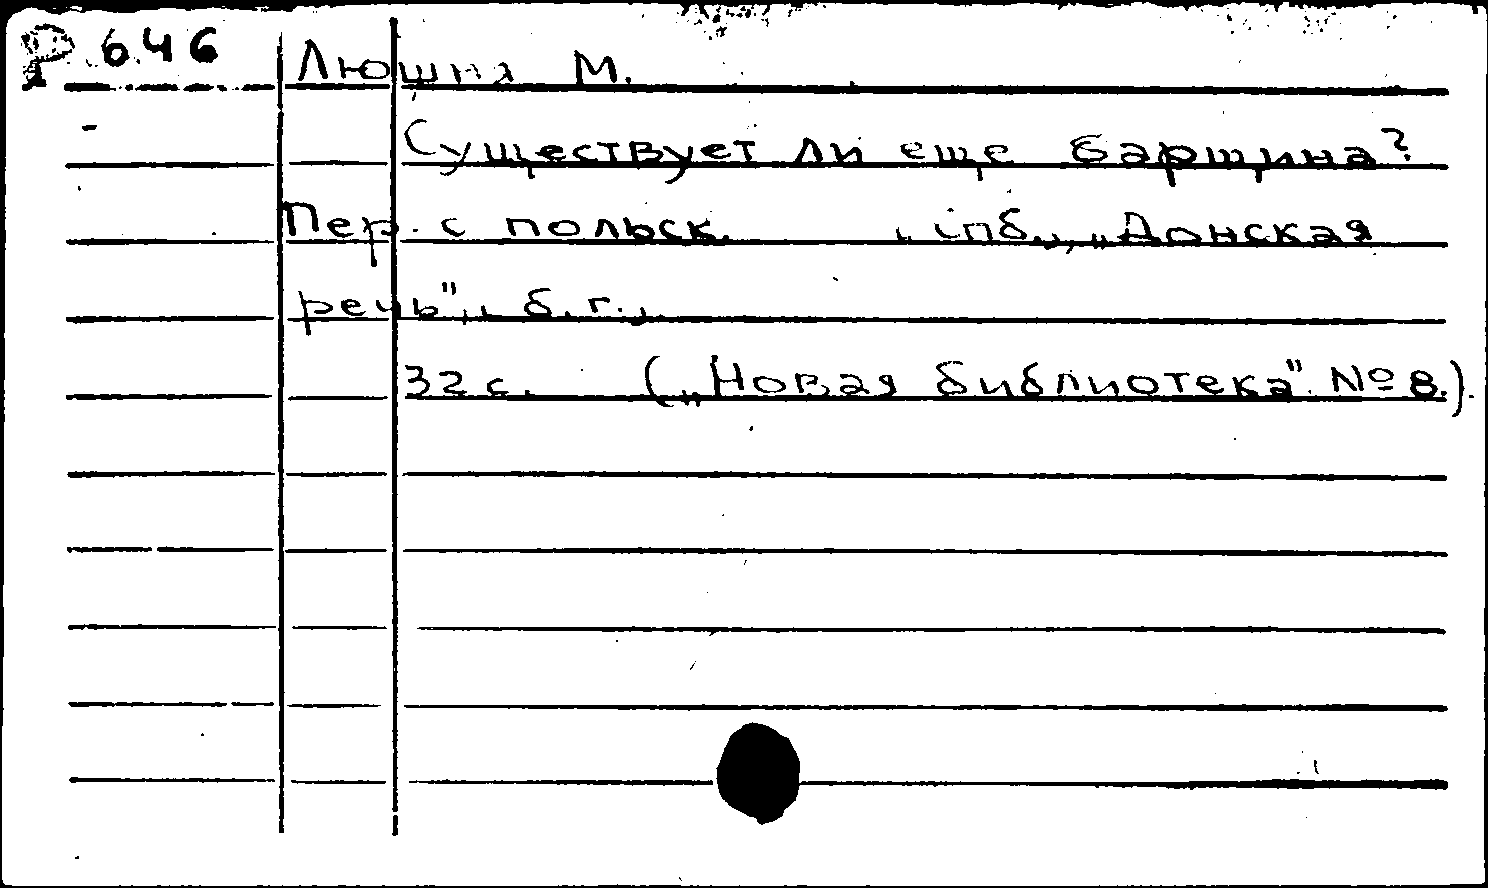 Р 646 Люшня М.
Существует ли еще барщина?
Пер. с польск. Спб., „Донская
речь", б.г.,
32 с. („Новая библиотека" № 8.)